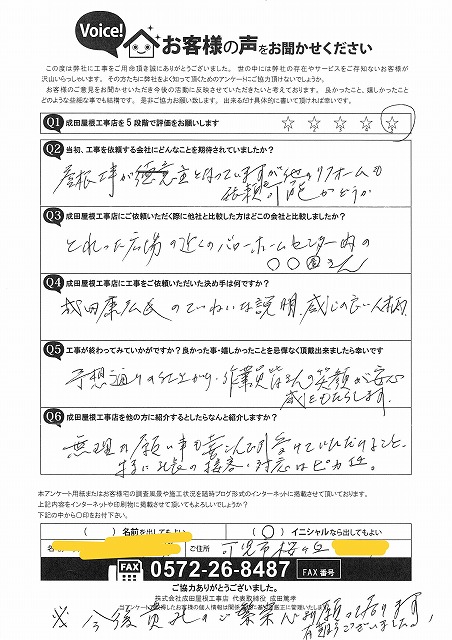 Voice!
お客様の声をお聞かせください
この度は弊社に工事をご用命頂き誠にありがとうございました。世の中には弊社の存在やサービスをご存知ないお客様が
沢山いらっしゃいます。その方たちに弊社をよく知って頂くためのアンケートにご協力頂けないでしょうか。
お客様のご意見をお聞かせいただき今後の活動に反映させていただきたいと考えております。良かったこと、嬉しかったこと
どのような些細な事でも結構です。是非ご協力お願い致します。出来るだけ具体的に書いて頂ければ幸いです。
Q1 成田屋根工事店を5段階で評価をお願いします ☆ ☆ ☆ ☆ ☆
Q2 当初、工事を依頼する会社にどんなことを期待されていましたか?
屋根工事が得意と伺っていますが他のリフォームの
依頼可能かどうか
Q3 成田屋根工事店にご依頼いただく際に他社と比較した方はどこの会社と比較しましたか?
とれった広場の近くのバローホームセンター内の
○○園さん
Q4 成田屋根工事店に工事をご依頼いただいた決め手は何ですか?
成田康弘氏のていねいな説明、感じの良い人柄
Q5 工事が終わってみていかがですか?良かった事・嬉しかったことを忌憚なく頂戴出来ましたら幸いです
予想通りの仕上がり、作業員皆さんの笑顔が安心
感をもたらします。
Q6 成田屋根工事店を他の方に紹介するとしたらなんと紹介しますか?
無理な願い事も喜こんで引き受けていただけること、
特に社長の接客・対応はピカ一。
本アンケート用紙またはお客様宅の調査風景や施工状況を随時ブログ形式のインターネットに掲載させて頂いております。
上記内容をインターネットや印刷物に掲載させて頂いてもよろしいでしょうか?
下記の中から〇印をお付け下さい。
( )名前を出してもよい (○)イニシャルなら出してもよい
ご住所 可児市桜ヶ丘
FAX 0572-26-8487 FAX番号
ご協力ありがとうございました。
株式会社成田屋根工事店 代表取締役 成田篤孝
当アンケートで取得したお客様の個人情報は関係法令に基づき厳正に管理いたします。
※今後貴社のご繁栄心お願っております。
有難うございました。